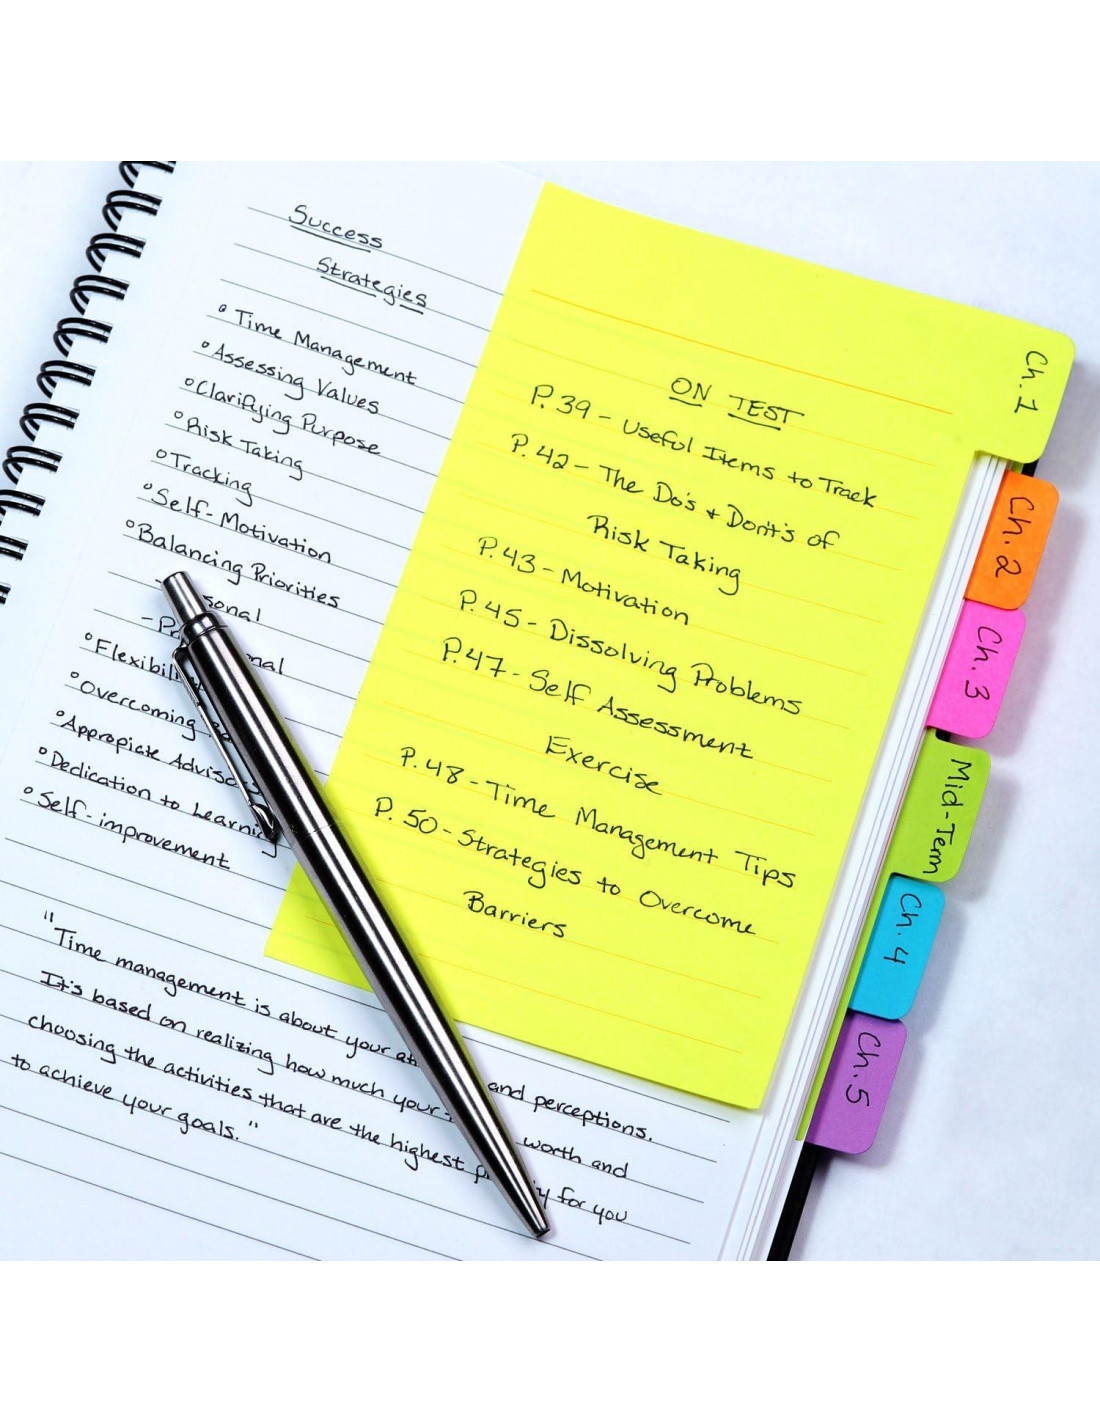 Success
Strategies
° Time Management
° Assessing Values
° Clarifying Purpose
° Risk Taking
° Tracking
° Self-Motivation
° Balancing Priorities
-
-
° Flexibility
° Overcoming
° Appropiate
° Dedication to Learning
° Self-improvement
"Time management is about your and perceptions.
It's based on realizing how much your worth and
choosing the activities that are the highest for you
to achieve your goals."
ON TEST
P. 39 - Useful Items to Track
P. 42 - The Do's + Dont's of
Risk Taking
P. 43 - Motivation
P. 45 - Dissolving Problems
P. 47 - Self Assessment
Exercise
P. 48 - Time Management Tips
P. 50 - Strategies to Overcome
Barriers
Ch. 1
Ch. 2
Ch. 3
Mid-Term
Ch. 4
Ch. 5